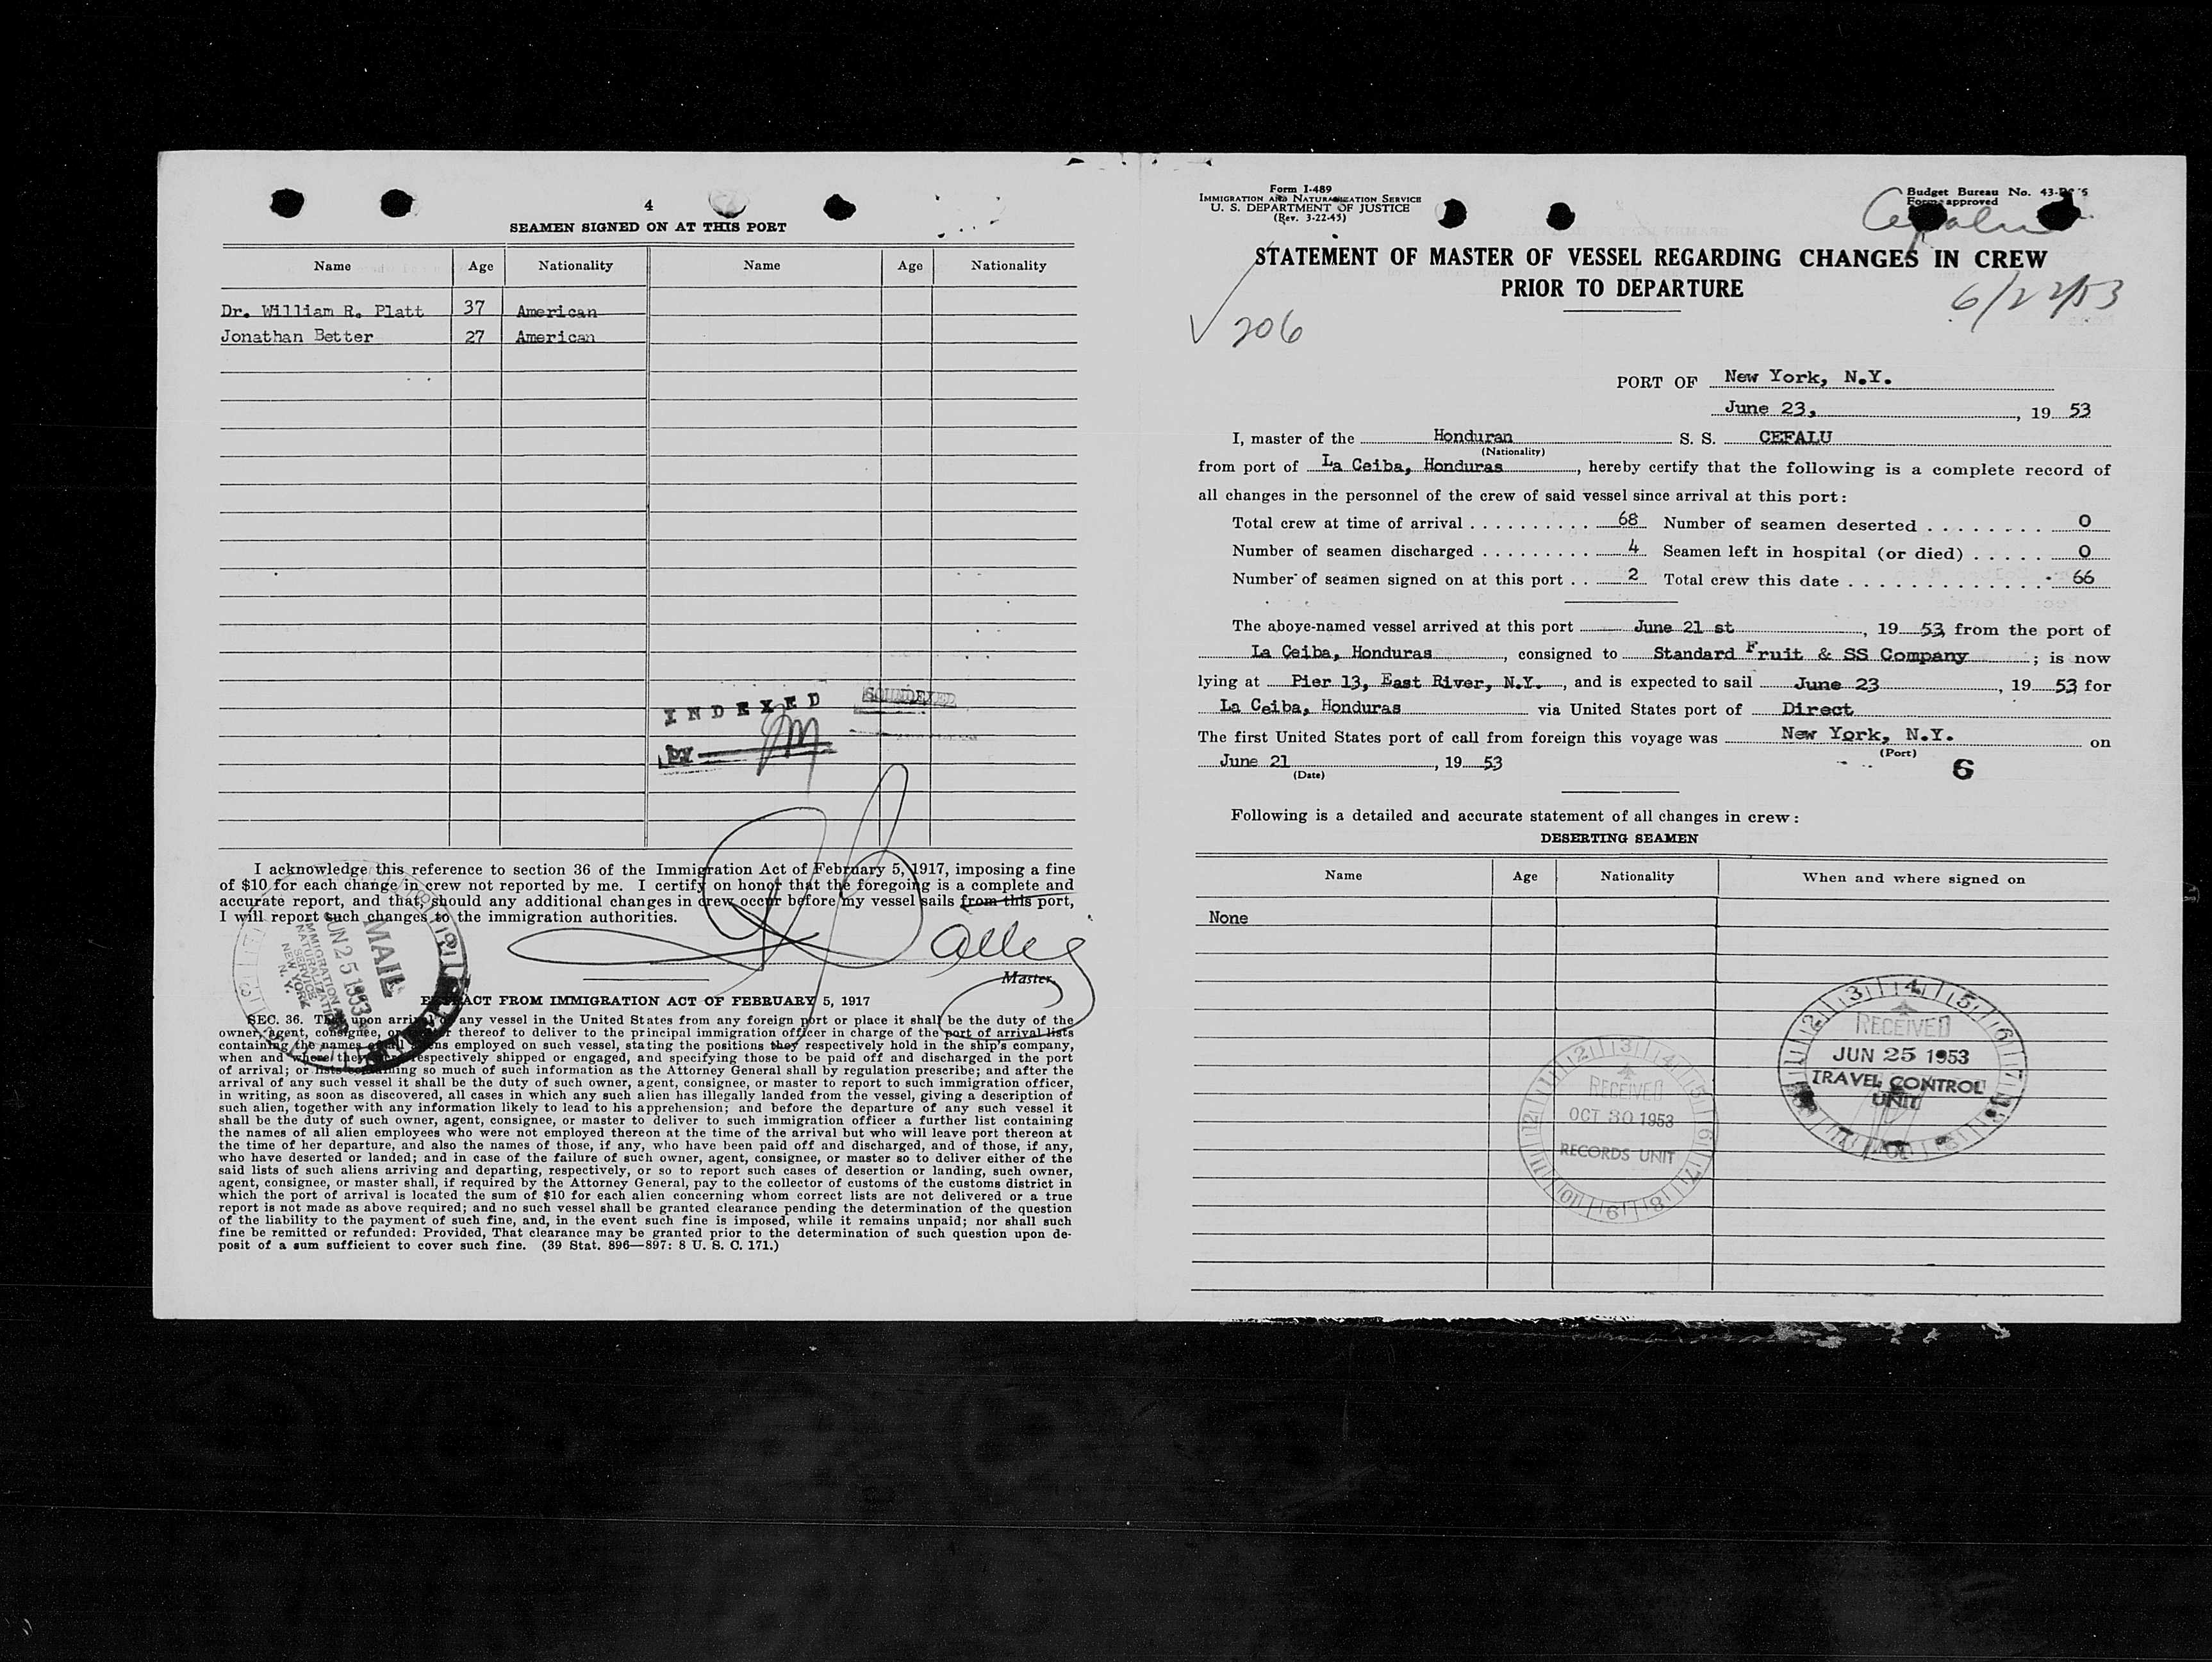 4
SEAMEN SIGNED ON AT THIS PORT
Name Age Nationality Name Age Nationality
Dr. William R. Platt 37 American
Jonathan Better 27 American
INDEXED
SOUNDEXED
BY JM
I acknowledge this reference to section 36 of the Immigration Act of February 5, 1917, imposing a fine
of $10 for each change in crew not reported by me. I certify on honor that the foregoing is a complete and
accurate report, and that, should any additional changes in crew occur before my vessel sails from this port,
I will report such changes to the immigration authorities.
Master.
MAIL
JUN 25 1953
IMMIGRATION
NATURALIZATION
SERVICE
NEW YORK
N. Y.
EXTRACT FROM IMMIGRATION ACT OF FEBRUARY 5, 1917
SEC. 36. That upon arrival of any vessel in the United States from any foreign port or place it shall be the duty of the
owner, agent, consignee, or master thereof to deliver to the principal immigration officer in charge of the port of arrival lists
containing the names of all aliens employed on such vessel, stating the positions they respectively hold in the ship's company,
when and where they were respectively shipped or engaged, and specifying those to be paid off and discharged in the port
of arrival; or lists containing so much of such information as the Attorney General shall by regulation prescribe; and after the
arrival of any such vessel it shall be the duty of such owner, agent, consignee, or master to report to such immigration officer,
in writing, as soon as discovered, all cases in which any such alien has illegally landed from the vessel, giving a description of
such alien, together with any information likely to lead to his apprehension; and before the departure of any such vessel it
shall be the duty of such owner, agent, consignee, or master to deliver to such immigration officer a further list containing
the names of all alien employees who were not employed thereon at the time of the arrival but who will leave port thereon at
the time of her departure, and also the names of those, if any, who have been paid off and discharged, and of those, if any,
who have deserted or landed; and in case of the failure of such owner, agent, consignee, or master so to deliver either of the
said lists of such aliens arriving and departing, respectively, or so to report such cases of desertion or landing, such owner,
agent, consignee, or master shall, if required by the Attorney General, pay to the collector of customs of the customs district in
which the port of arrival is located the sum of $10 for each alien concerning whom correct lists are not delivered or a true
report is not made as above required; and no such vessel shall be granted clearance pending the determination of the question
of the liability to the payment of such fine, and, in the event such fine is imposed, while it remains unpaid; nor shall such
fine be remitted or refunded: Provided, That clearance may be granted prior to the determination of such question upon de-
posit of a sum sufficient to cover such fine. (39 Stat. 896—897: 8 U. S. C. 171.)
Form I-489
IMMIGRATION AND NATURALIZATION SERVICE
U. S. DEPARTMENT OF JUSTICE
(Rev. 3-22-45)
Budget Bureau No. 43-
Form approved
Cefalu
STATEMENT OF MASTER OF VESSEL REGARDING CHANGES IN CREW
PRIOR TO DEPARTURE
6/22/53
206
PORT OF New York, N.Y.
June 23, , 19 53
I, master of the Honduran S. S. CEFALU
(Nationality)
from port of La Ceiba, Honduras , hereby certify that the following is a complete record of
all changes in the personnel of the crew of said vessel since arrival at this port:
Total crew at time of arrival . . . . . . . . . . 68 Number of seamen deserted . . . . . . . . 0
Number of seamen discharged . . . . . . . . . 4 Seamen left in hospital (or died) . . . . . 0
Number of seamen signed on at this port . . 2 Total crew this date . . . . . . . . . . . . . . 66
The above-named vessel arrived at this port June 21 st , 19 53, from the port of
La Ceiba, Honduras , consigned to Standard Fruit & SS Company ; is now
lying at Pier 13, East River, N.Y. , and is expected to sail June 23 , 19 53, for
La Ceiba, Honduras via United States port of Direct
The first United States port of call from foreign this voyage was New York, N.Y. on
(Port)
June 21 , 19 53
(Date)
6
Following is a detailed and accurate statement of all changes in crew:
DESERTING SEAMEN
Name Age Nationality When and where signed on
None
RECEIVED
JUN 25 1953
TRAVEL CONTROL
UNIT
RECEIVED
OCT 30 1953
RECORDS UNIT